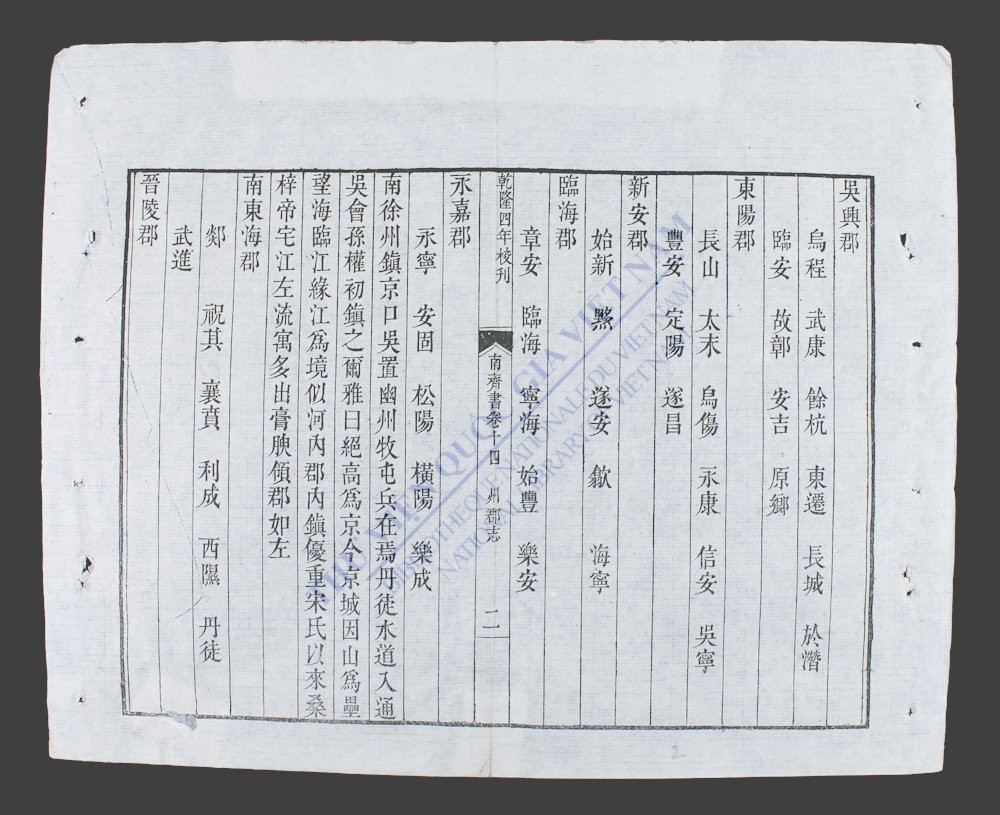 吳興郡
烏程 武康 餘杭 東遷 長城 於潛
臨安 故鄣 安吉 原鄉
東陽郡
長山 太末 烏傷 永康 信安 吳寧
豐安 定陽 遂昌
新安郡
始新 黟 遂安 歙 海寧
臨海郡
章安 臨海 寧海 始豐 樂安
乾隆四年校刊
南齊書卷十四 州郡志 二
永嘉郡
永寧 安固 松陽 橫陽 樂成
南徐州鎮京口吳置幽州牧屯兵在焉丹徒水道入通
吳會孫權初鎮之爾雅曰絕高為京今京城因山為壘
望海臨江緣江為境似河內郡內鎮優重宋氏以來桑
梓帝宅江左流寓多出膏腴領郡如左
南東海郡
郯 祝其 襄賁 利成 西隰 丹徒
武進
晉陵郡
THƯ VIỆN QUỐC GIA VIỆT NAM
BIBLIOTHEQUE NATIONALE DU VIETNAM
NATIONAL LIBRARY OF VIETNAM
2